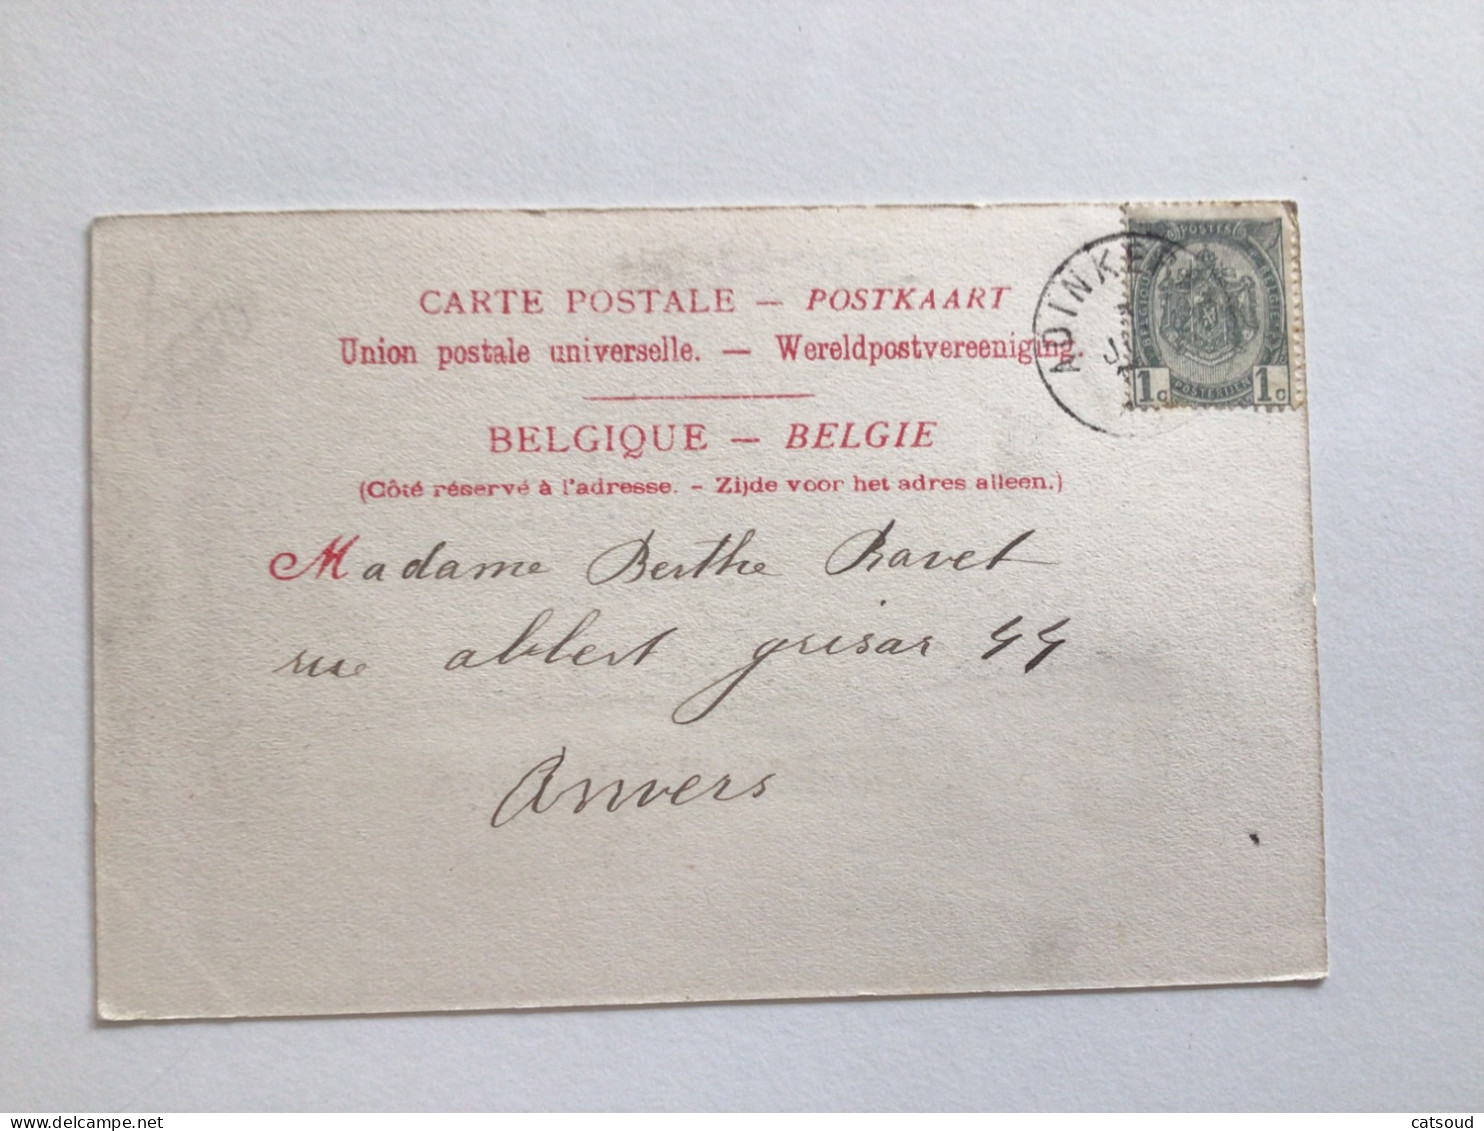 CARTE POSTALE — POSTKAART
Union postale universelle. — Wereldpostvereeniging.
BELGIQUE — BELGIE
(Côté réservé à l'adresse. - Zijde voor het adres alleen.)
Madame Berthe Ravet
rue albert grisar 44
Anvers
ADINKE
POSTES
BELGIQUE
POSTERIJEN
1c 1c
www.delcampe.net
catsoud